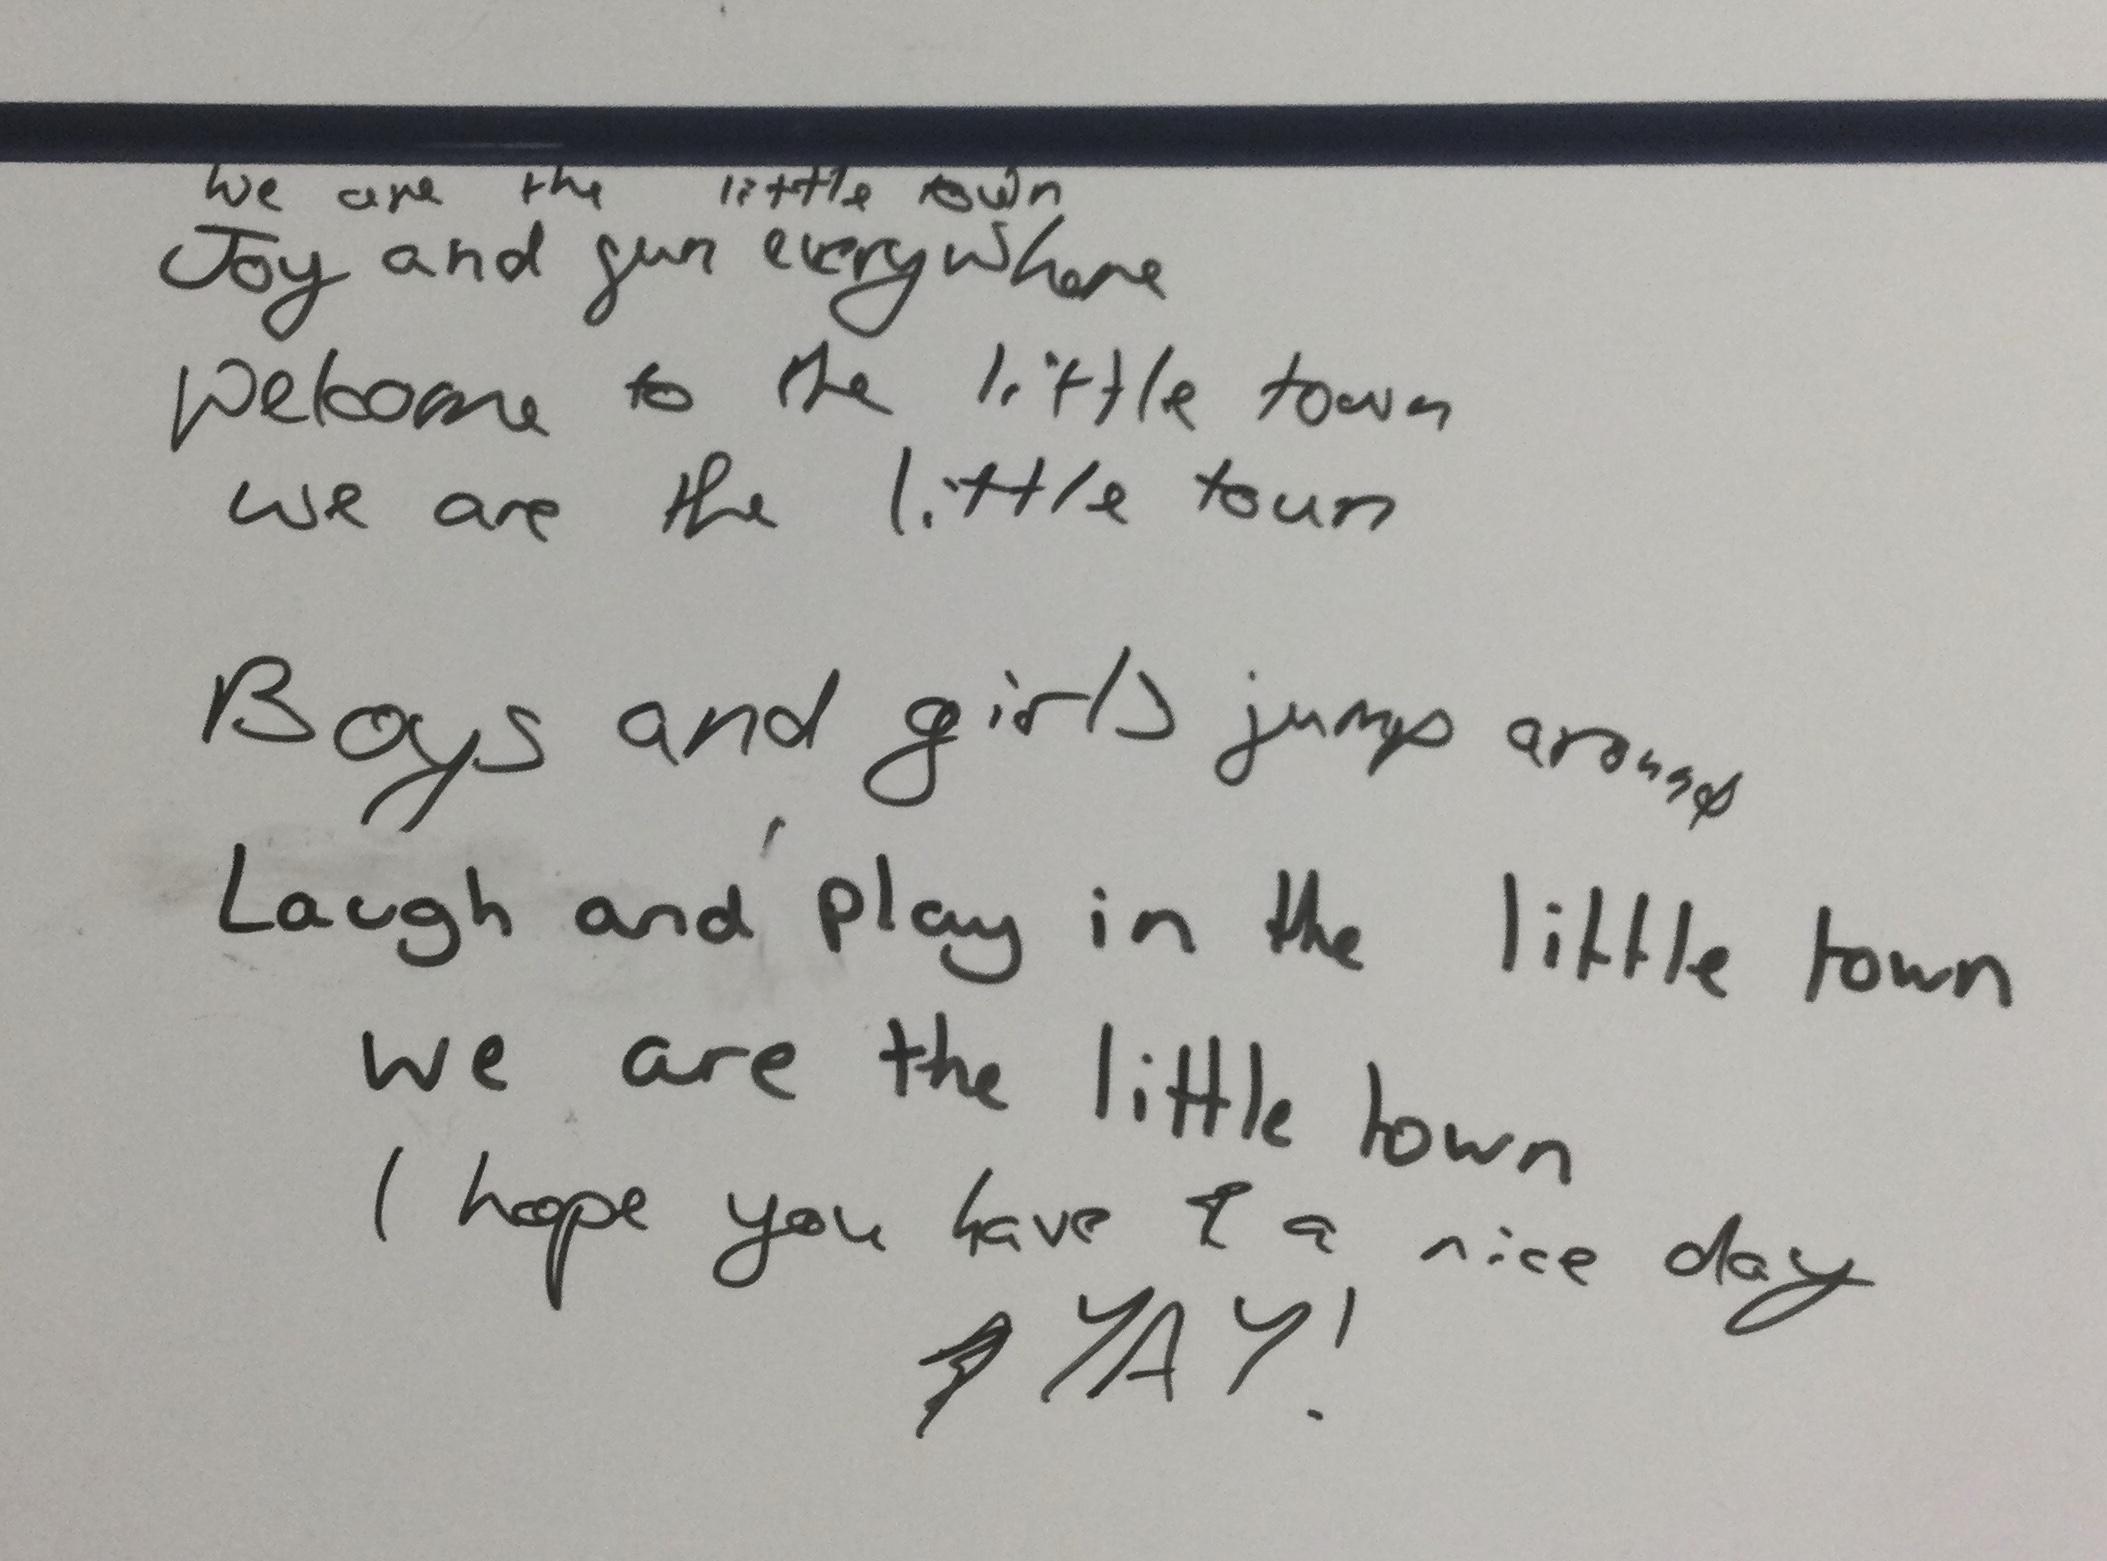 we are the little town
Joy and fun everywhere
Welcome to the little town
we are the little town
Boys and girls jump around
Laugh and play in the little town
we are the little town
I hope you have a nice day
YAY!